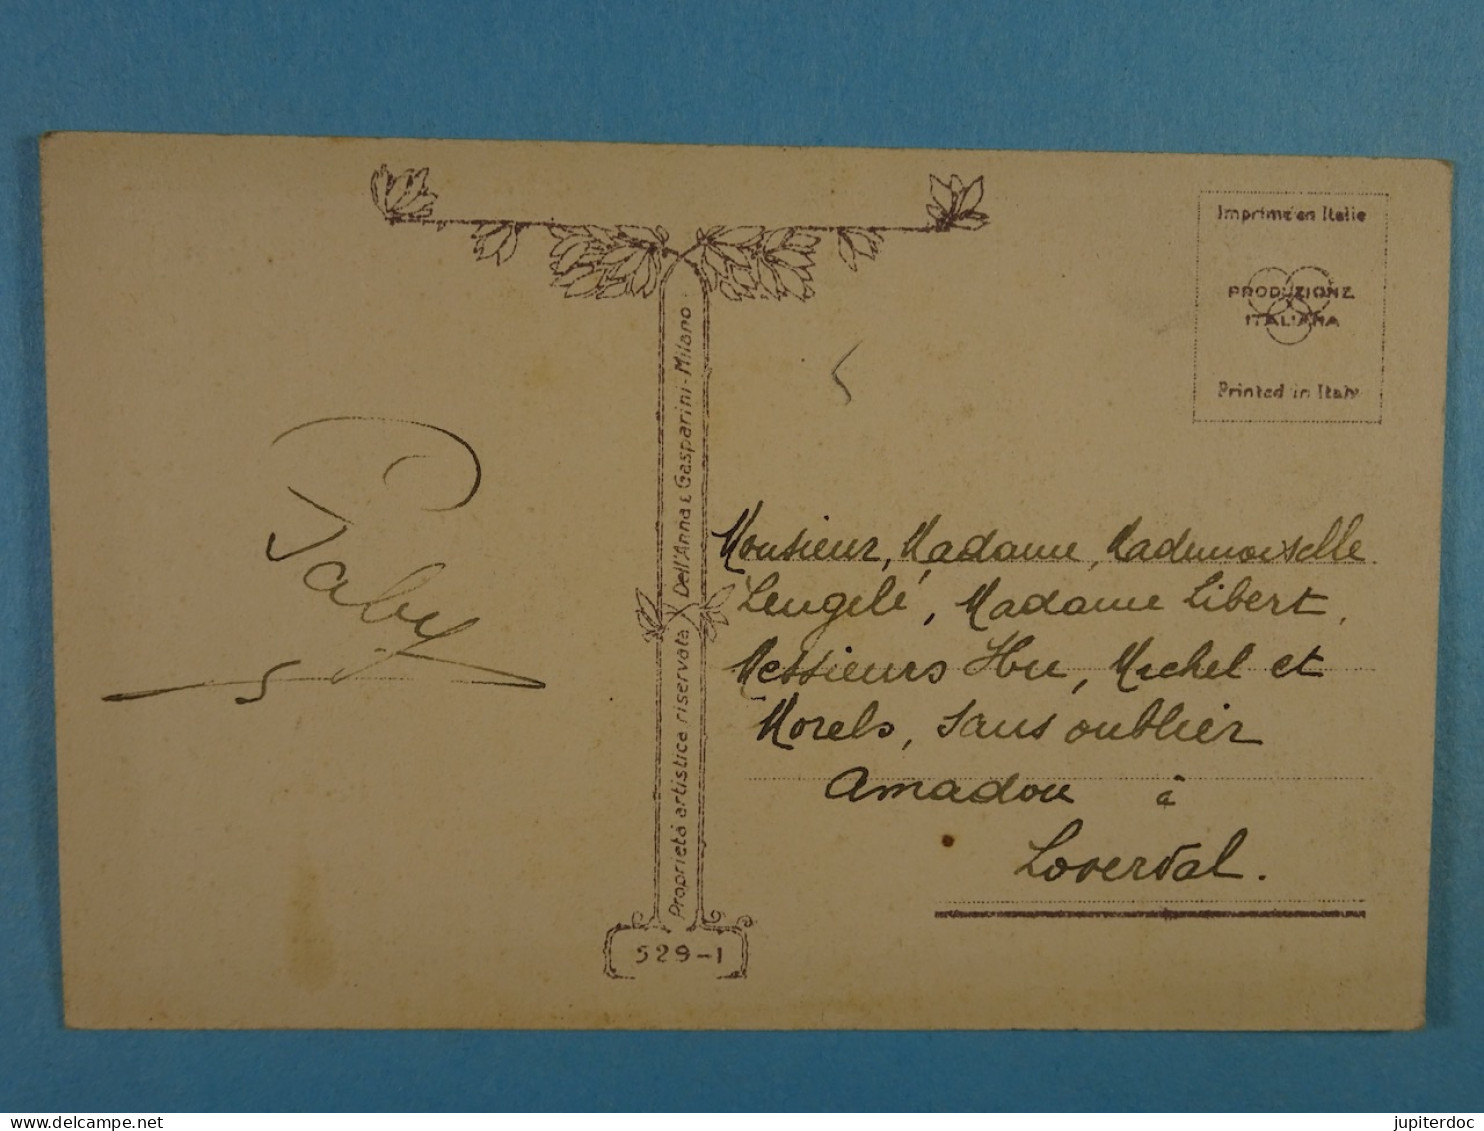 Imprimé en Italie
PRODUZIONE
ITALIANA
Printed in Italy
Proprietà artistica riservata Dell'Anna e Gasparini-Milano
529-1
Paby
Monsieur, Madame, Mademoiselle
Lengelé, Madame Libert,
Messieurs Michel et
Morels, sans oublier
Amadou à
Loverval.
delcampe.net
jupiterdoc